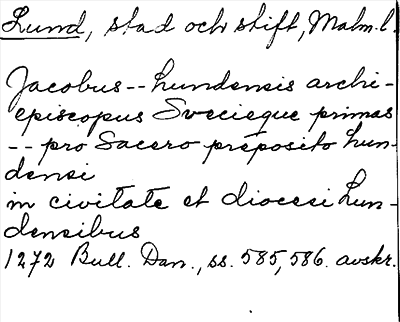 Lund, stad och stift, Malm. l.
Jacobus -- Lundensis archi-
episcopus Svecieque primas
-- pro Sacero preposito Lun-
densi
in civitate et diocesi Lun-
densibus
1272 Bull. Dan., ss. 585, 586. avskr.